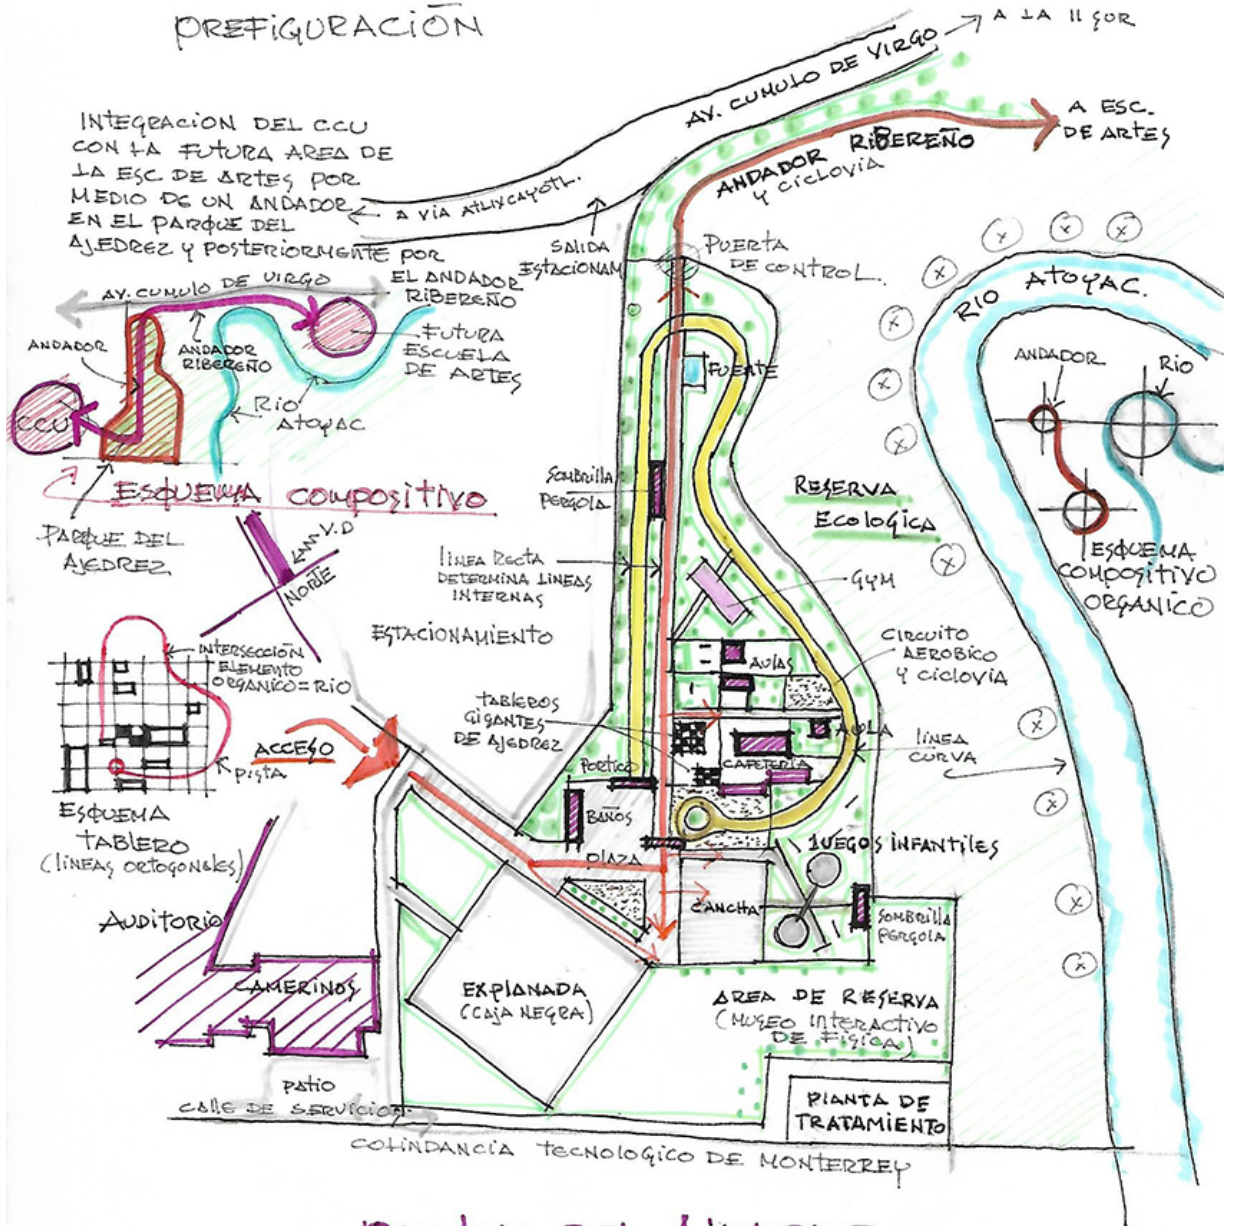 PREFIGURACIÓN
A LA 11 SUR
AV. CUMULO DE VIRGO
A ESC.
DE ARTES
INTEGRACION DEL CCU
CON LA FUTURA AREA DE
LA ESC. DE ARTES POR
MEDIO DE UN ANDADOR
EN EL PARQUE DEL
AJEDREZ Y POSTERIORMENTE POR
EL ANDADOR
RIBEREÑO
ANDADOR RIBEREÑO
Y CICLOVIA
A VIA ATLIXCAYOTL.
SALIDA
ESTACIONAM
PUERTA
DE CONTROL.
AV. CUMULO DE VIRGO
ANDADOR
ANDADOR
RIBEREÑO
FUTURA
ESCUELA
DE ARTES
RIO
ATOYAC
CCU
ESQUEMA COMPOSITIVO
PARQUE DEL
AJEDREZ
RIO ATOYAC.
ANDADOR
RIO
ESQUEMA
COMPOSITIVO
ORGANICO
FUENTE
SOMBRILLA
PERGOLA
RESERVA
ECOLOGICA
V.D
NORTE
LINEA RECTA
DETERMINA LINEAS
INTERNAS
GYM
ESTACIONAMIENTO
CIRCUITO
AEROBICO
Y CICLOVIA
INTERSECCIÓN
ELEMENTO
ORGANICO = RIO
AULAS
TABLEROS
GIGANTES
DE AJEDREZ
AULA
LINEA
CURVA
ACCESO
PISTA
CAFETERIA
PORTICO
ESQUEMA
TABLERO
(LINEAS ORTOGONALES)
BAÑOS
PLAZA
JUEGOS INFANTILES
CANCHA
SOMBRILLA
PERGOLA
AUDITORIO
CAMERINOS
EXPLANADA
(CAJA NEGRA)
AREA DE RESERVA
(MUSEO INTERACTIVO
DE FISICA)
PATIO
CALLE DE SERVICIO
PLANTA DE
TRATAMIENTO
COLINDANCIA TECNOLOGICO DE MONTERREY